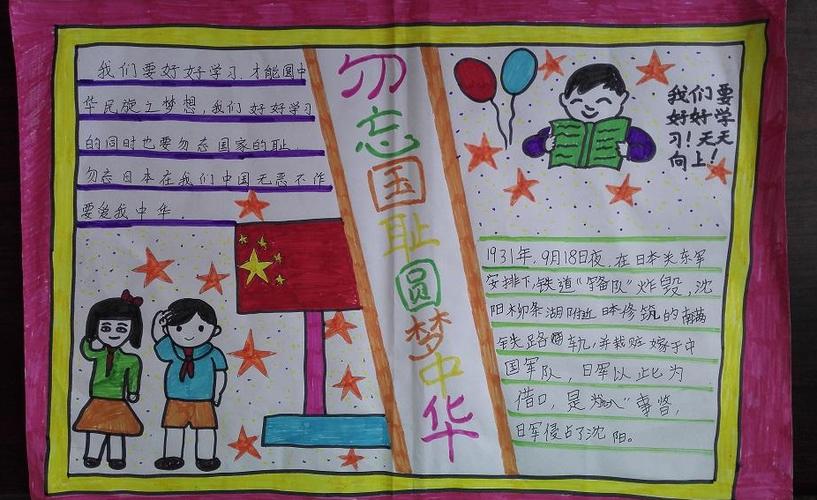 我们要好好学习.才能圆中
华民族之梦想，我们好好学习
的同时也要勿忘国家的耻.
勿忘日本在我们中国无恶不作
要爱我中华.
勿忘国耻圆梦中华
我们要
好好学
习！天天
向上！
1931年.9月18日夜.在日本关东军
安排下,铁道"队"炸毁,沈
阳柳条湖附近日本修筑的
铁路轨,并栽赃嫁于中
国军队，日军以此为
借口，是"事
日军侵占了沈阳。